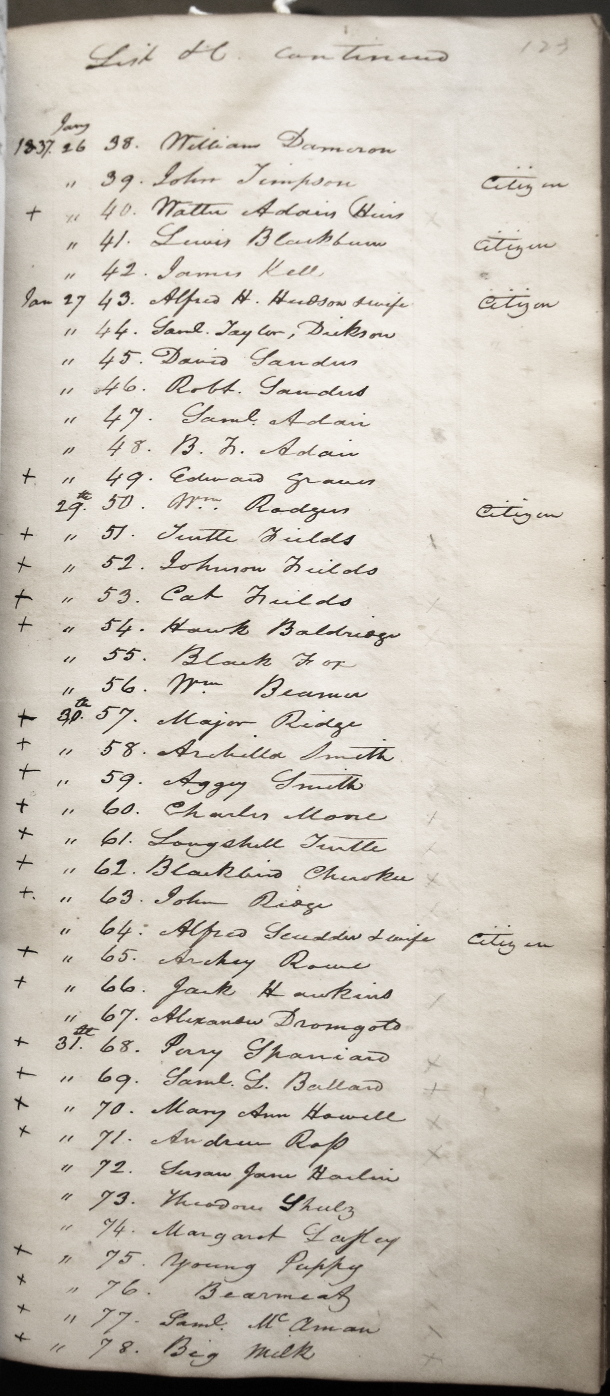 123
List &C. continued
Jany
1837. 26 38. William Dameron
" 39. John Timpson Citizen
+ " 40. Walter Adairs Heirs
" 41. Lewis Blackburn Citizen
" 42. James Kell
Jan 27 43. Alfred H. Hudson & wife Citizen
" 44. Saml. Taylor, Dickson
" 45. David Sandus
" 46. Robt. Sandus
" 47. Saml. Adair
" 48. B. F. Adair
+ " 49. Edward Graves
29th. 50. Wm. Rodgers Citizen
+ " 51. Turtle Fields
+ " 52. Johnson Fields
+ " 53. Cat Fields
+ " 54. Hawk Baldridge
" 55. Black Fox
" 56. Wm Beamer
+ 30th. 57. Major Ridge
+ " 58. Archilla Smith
+ " 59. Aggy Smith
+ " 60. Charles Moore
+ " 61. Longshell Turtle
+ " 62. Blackbird Cherokee
+. " 63. John Ridge
" 64. Alfred Scudder & wife Citizen
+ " 65. Archey Rowe
+ " 66. Jack Hawkins
" 67. Alexander Dromgole
+ 31st. 68. Perry Spaniard
+ " 69. Saml. L. Ballard
+ " 70. Mary Ann Howell
+ " 71. Andrew Ross
" 72. Susan Jane Harlin
" 73. Theodore Shulz
" 74. Margaret Lasley
+ " 75. Young Puppy
+ " 76. Bearmeat
+ " 77. Saml. McAman
+ " 78. Big Milk